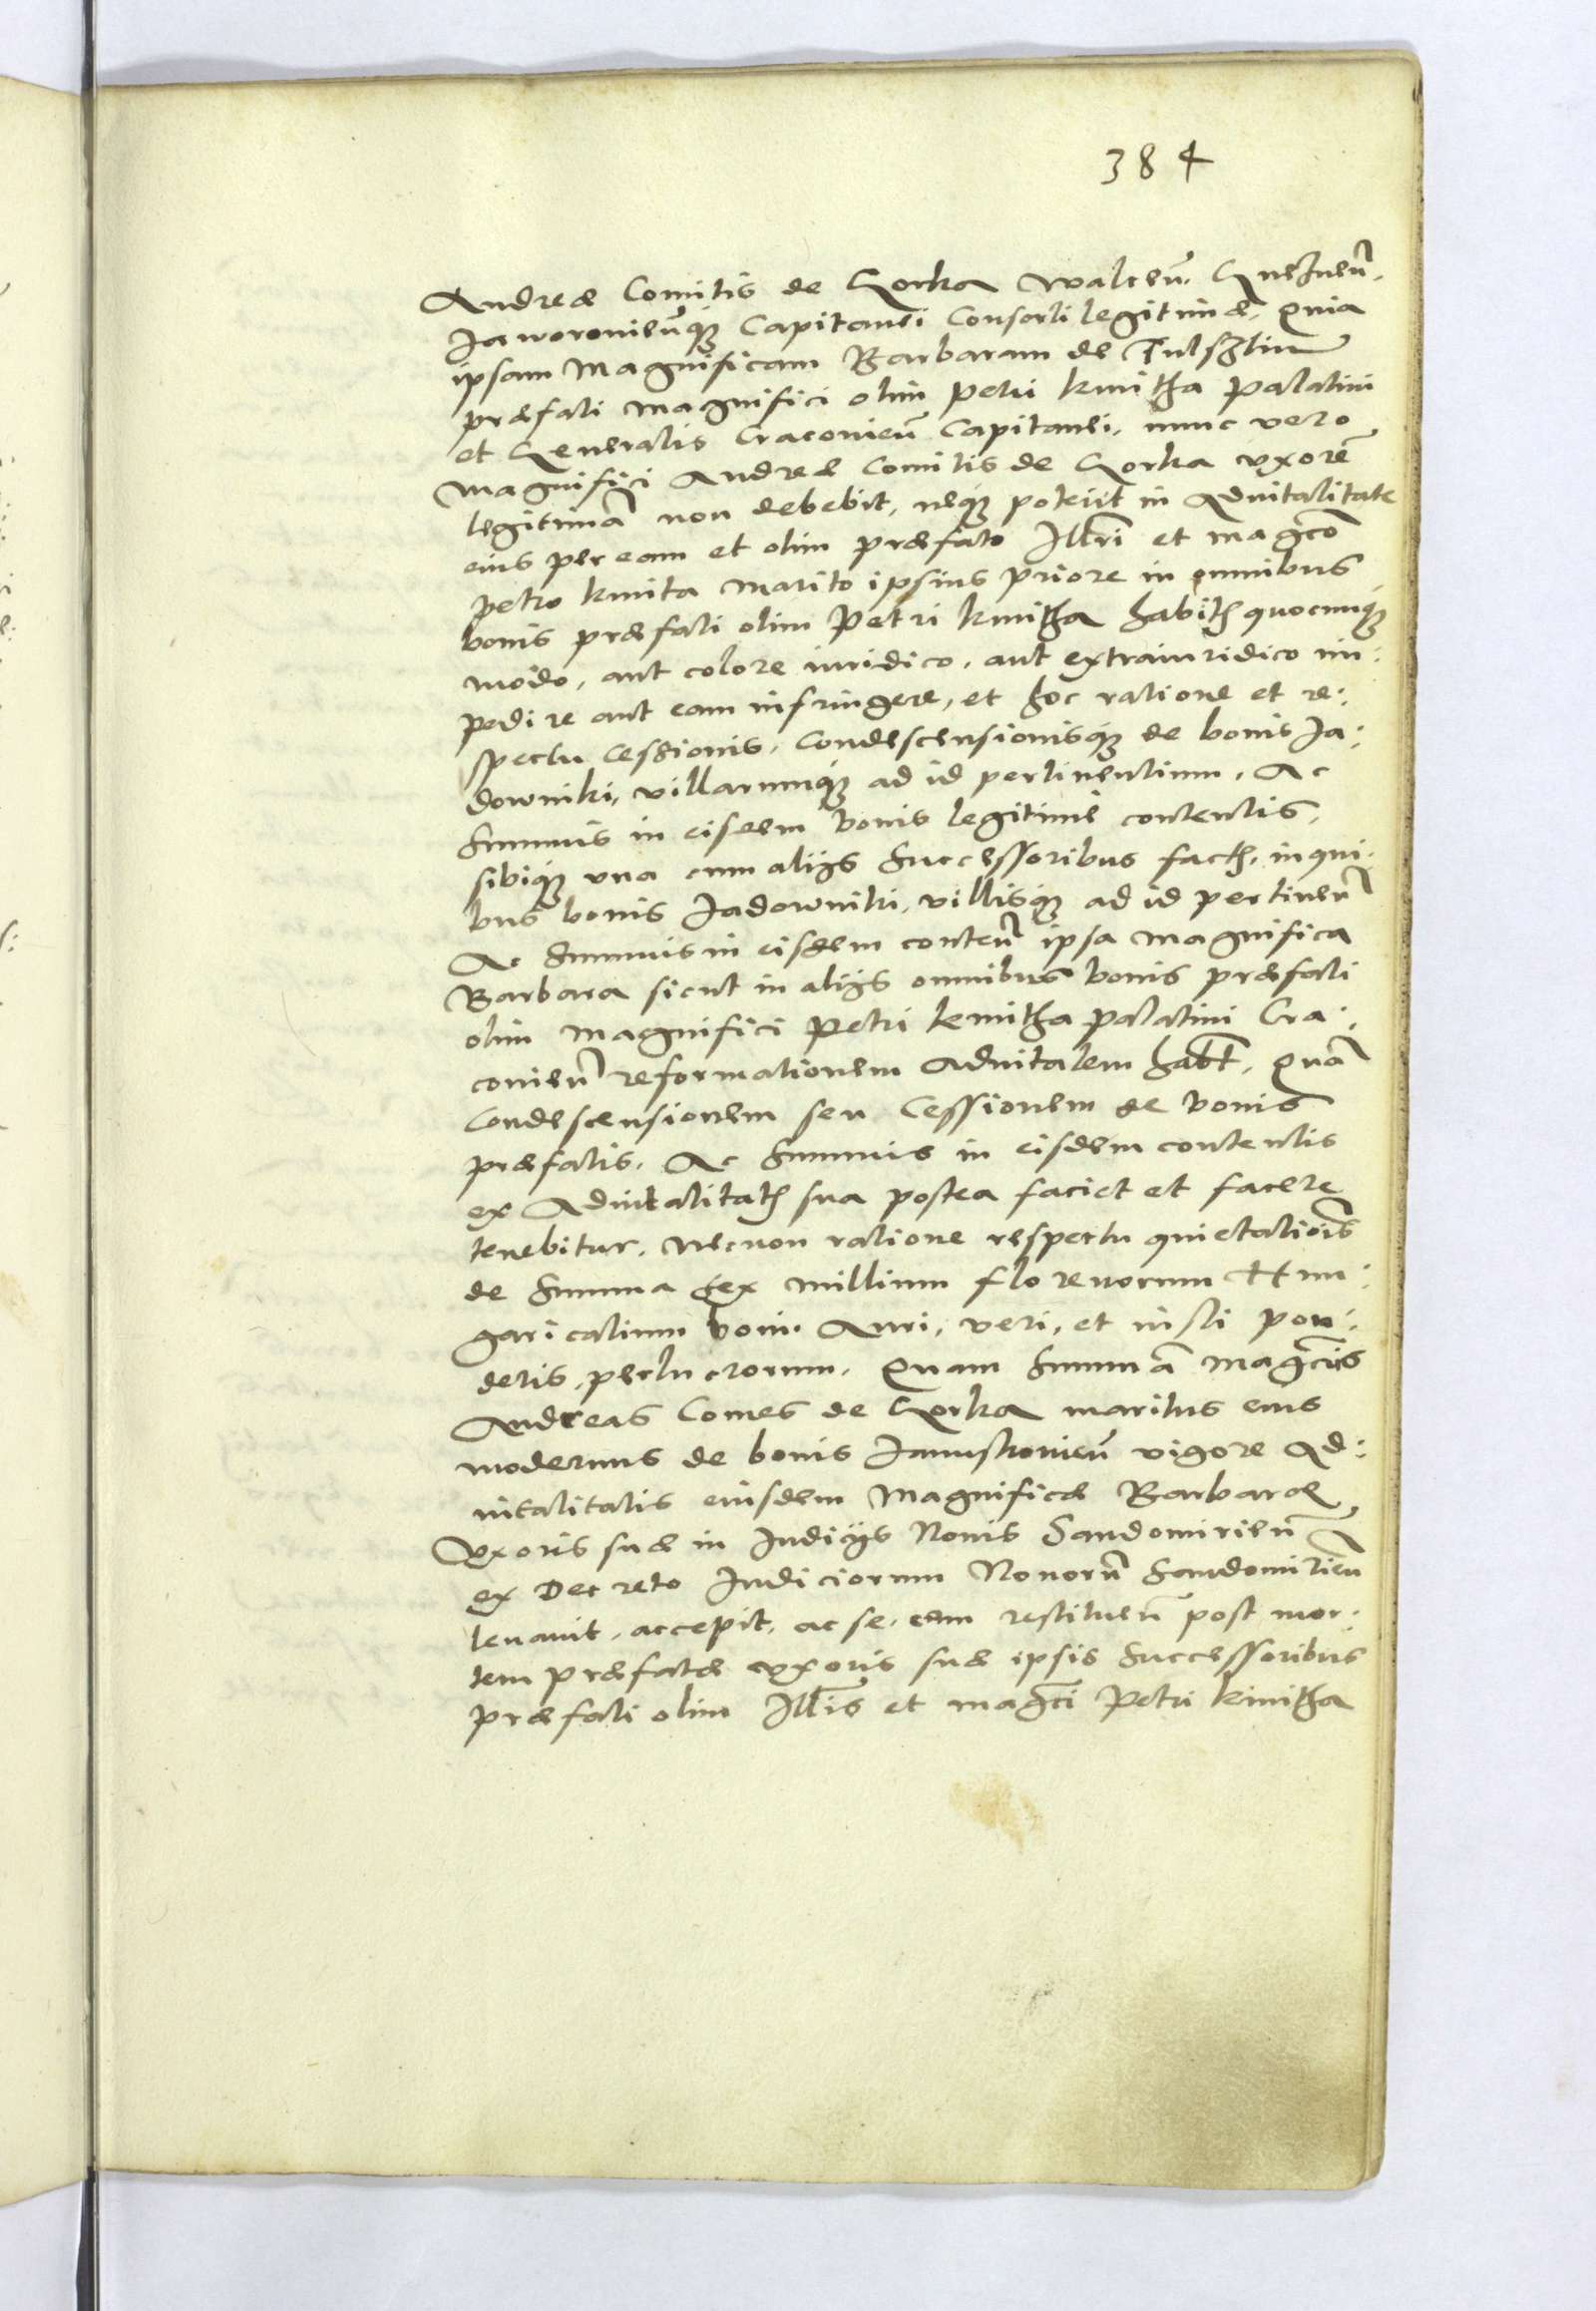 384
Andreæ Comitis de Gorka Walceñ. Gneznen̄.
Jaworonieñq; Capitanei Consorti legitimæ. Quia
ipsam Magnificam Barbaram de Fulsztin
præfati magnifici olim Petri kmitha Palatini
et Generalis Cracovieñ Capitanei. nunc vero
magnifici Andreæ Comitis de Gorka uxorē
legitimā non debebit, neq; poterit in Aduitalitate
eius per eam et olim præfato Illri et magco
Petro kmita marito ipsius priore in omnibus
bonis præfati olim Petri kmitha habit; quocunq;
modo, aut colore iuridico, aut extraiuridico im:
pedire aut eam infringere, et hoc ratione et re:
spectu Cessionis, Condescensionisq; de bonis Ja:
downiki, villarumq; ad id pertinentium, Ac
Summis in eisdem bonis legitime contentis,
sibiq; vna cum alijs Successoribus fact;, in qui:
bus bonis Jadowniki, villisq; ad id pertineñ
Ac Summis in eisdem conteñ ipsa magnifica
Barbara sicut in alijs omnibus bonis præfati
olim magnifici Petri kmitha palatini Cra:
covieñ reformationem aduitalem habt, Quā
Condescensionem seu Cessionem de bonis
præfatis, Ac Summis in eisdem contentis
ex Aduitalitat; sua postea faciet et facere
tenebitur. Necnon ratione respectu quietatiois
de Summa sex millium florenorum Hun:
garicalium boni Auri, veri, et iusti pon:
deris, perlucrorum. Quam Summā magcus
Andreas Comes de Gorka maritus eius
modernus de bonis Januskovieñ vigore Ad:
uitalitatis eiusdem Magnificæ Barbaræ
Uxoris suæ in Judicijs Novis Sandomirieñ
ex Decreto Judiciorum Novorū Sandomirieñ
levavit, accepit, ac se, eam restitueñ post mor:
tem præfatæ uxoris suæ ipsis Successoribus
præfati olim Illis et magci Petri kmitha